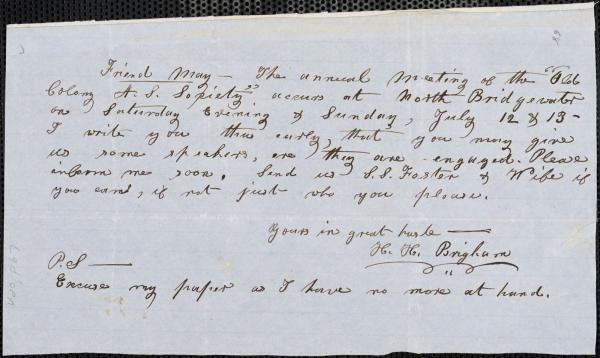 Friend May — The annual meeting of the "Old
Colony A. S. Society" occurs at North Bridgewater
on Saturday Evening & Sunday, July 12 & 13 -
I write you thus early, that you may give
us some speakers, ere they are engaged. Please
inform me soon. Send us S. S. Foster & Wife if
you can, if not just who you please.
Yours in great haste —
H. H. Brigham
P.S —
Excuse my paper as I have no more at hand.